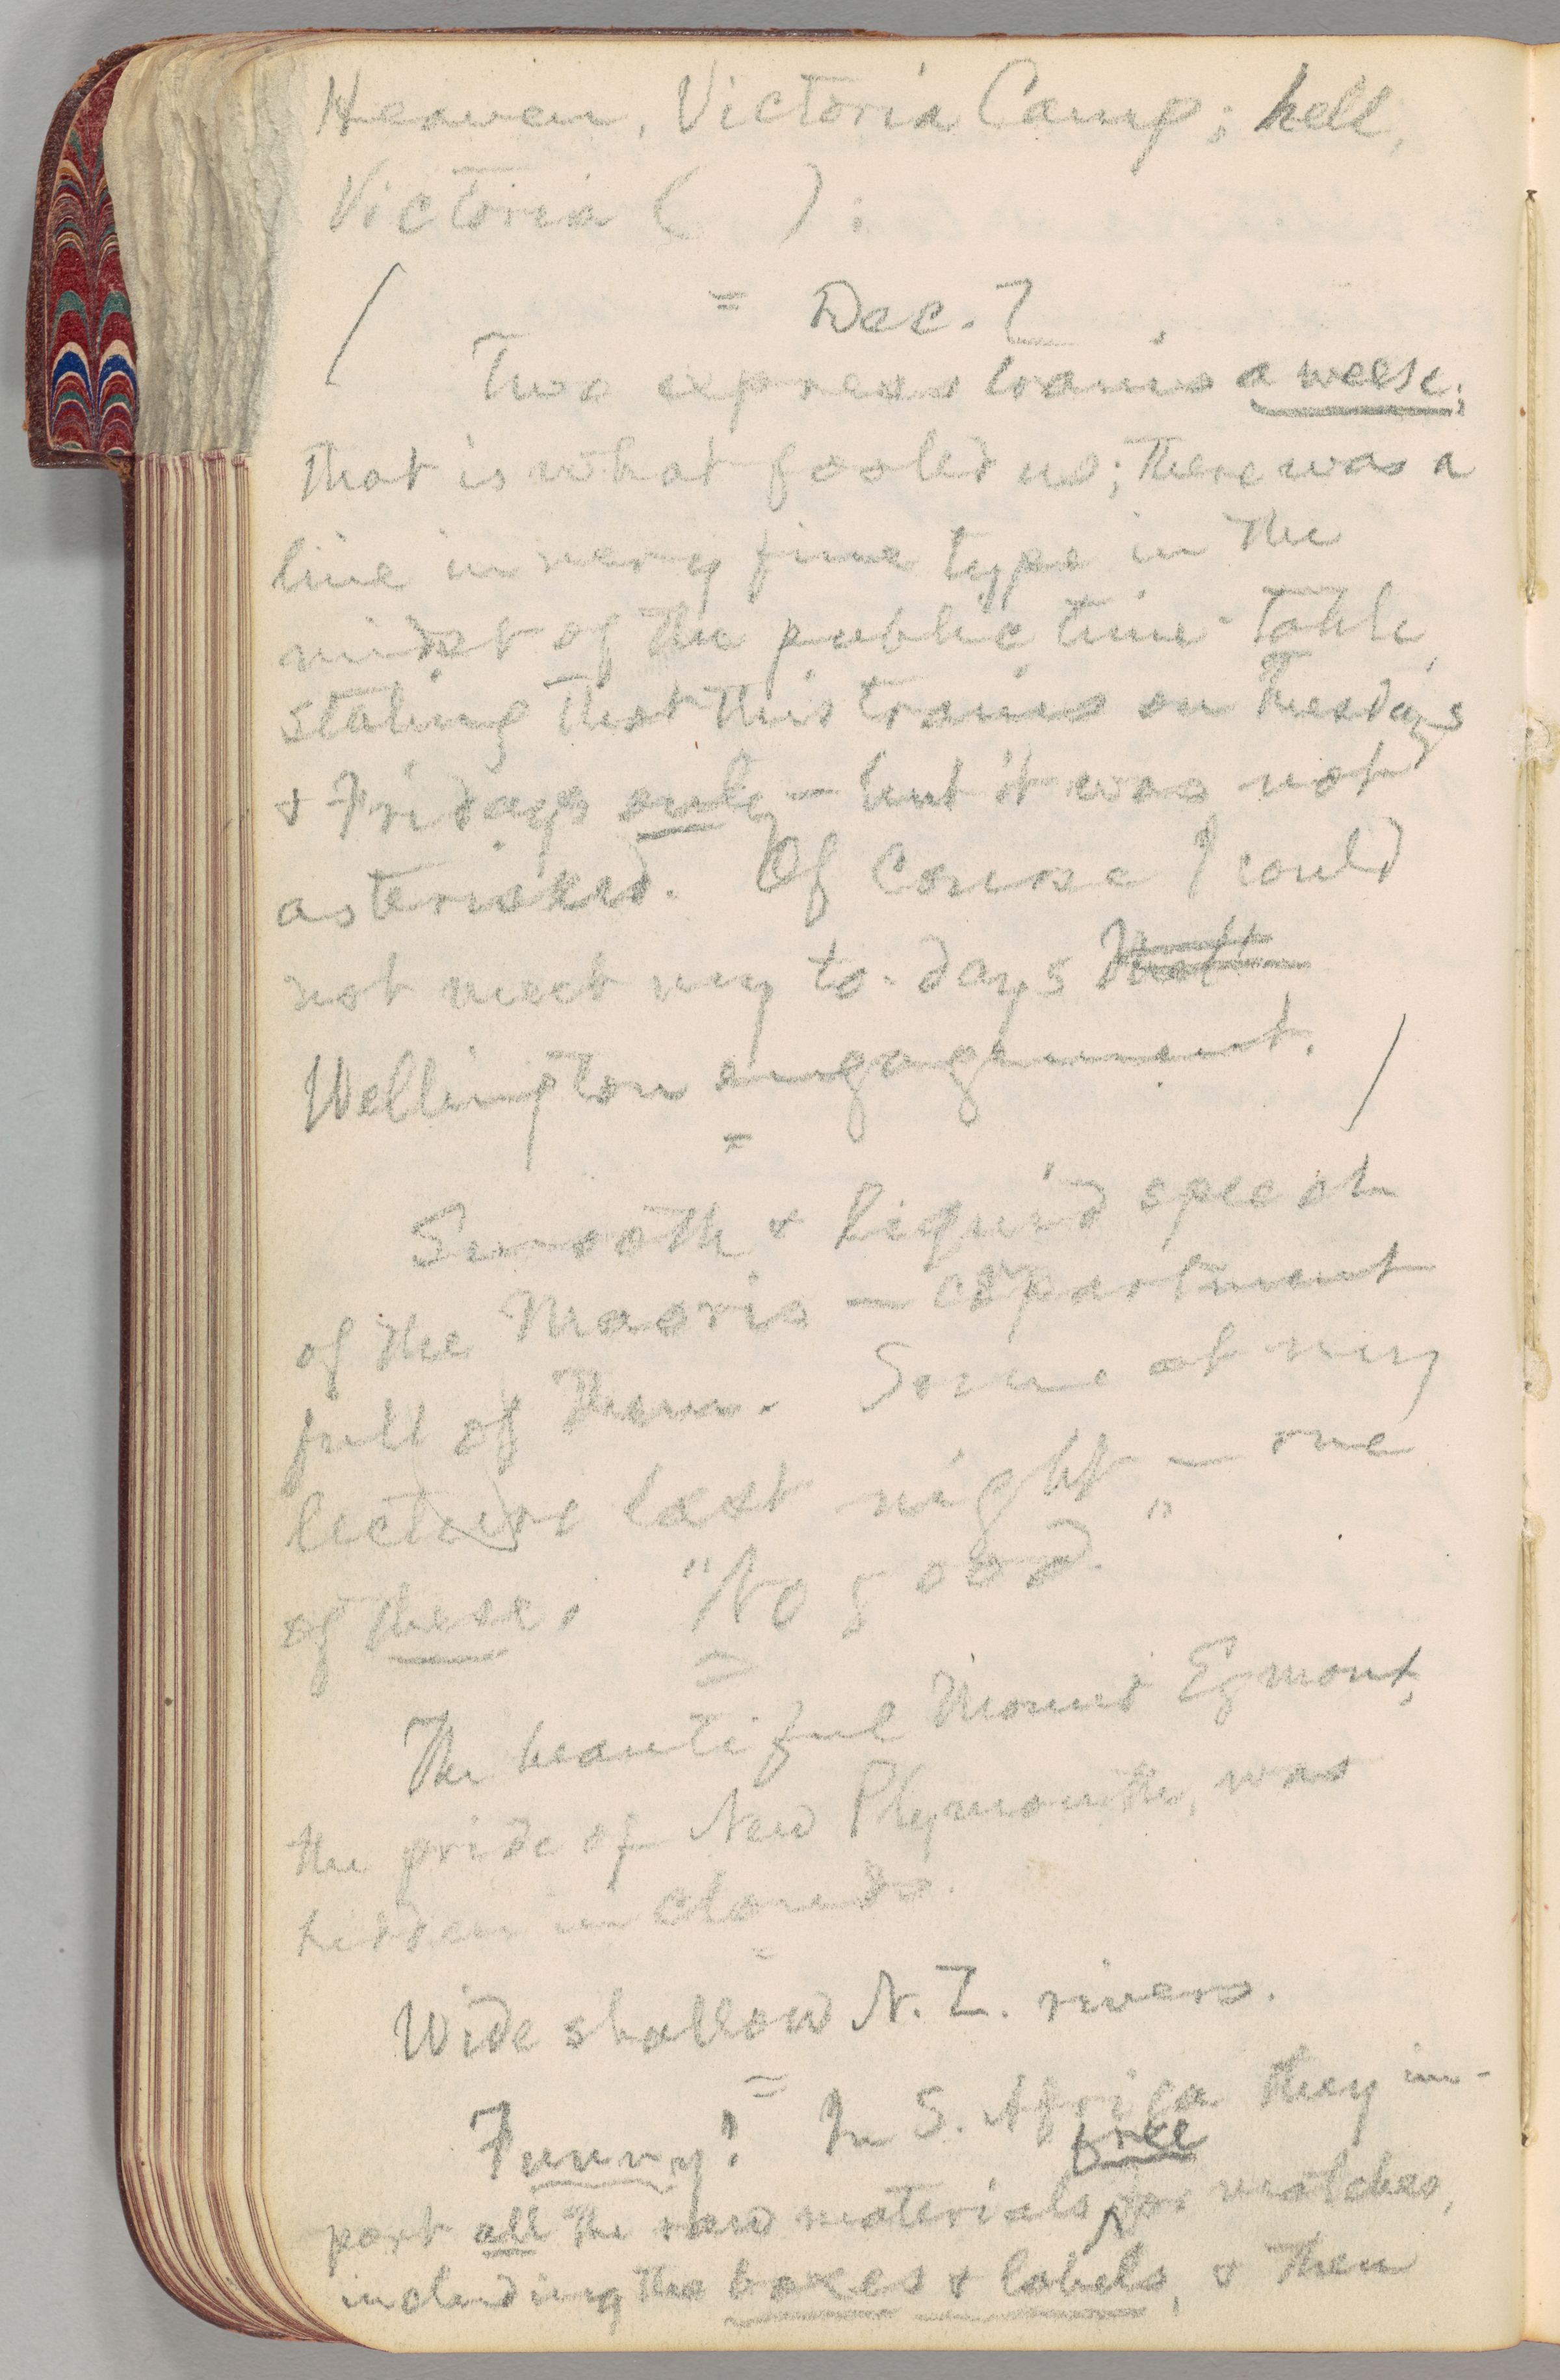 Heaven, Victoria Camp; hell,
Victoria ( ):
= Dec. 7
Two express trains a week;
that is what fooled us; there was a
line in very fine type in the
midst of the public time-table,
stating that this trains on Tuesdays
& Fridays only — but it was not
asterisked. Of course I could
not meet my to-days
Wellington engagement.
=
Smooth & liquid speech
of the Maoris — compartment
full of them. Some at my
lecture last night — one
of these. "No good."
=
The beautiful Mount Egmont,
the pride of New Plymouth, was
hidden in clouds.
=
Wide shallow N. Z. rivers.
=
Funny! In S. Africa they im-
port all the raw materials free for matches,
including the boxes & labels, & then